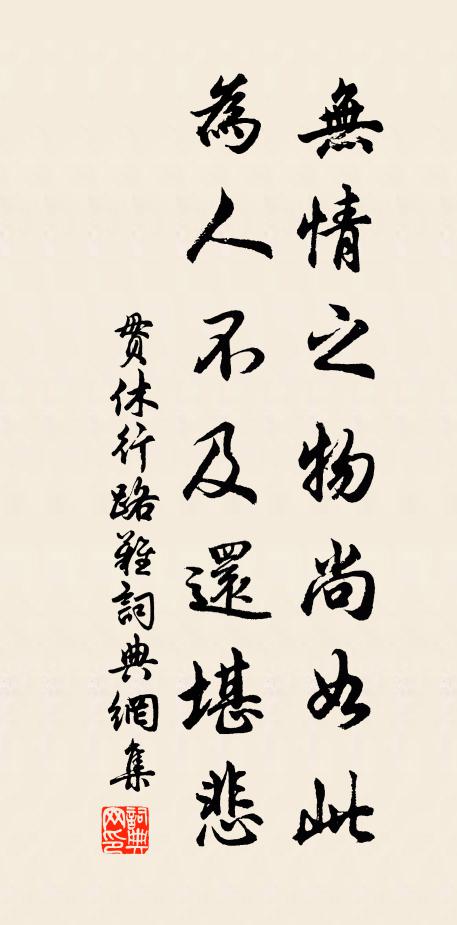 無情之物尚如此
為人不及還堪悲
貫休行路難詞典網集
詞典
网印